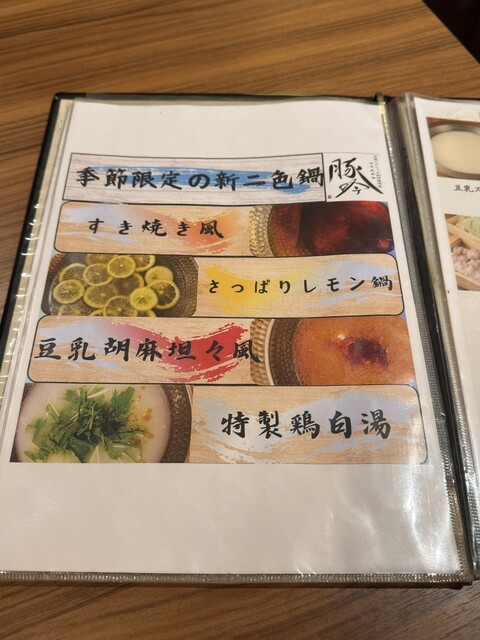 季節限定の新二色鍋
豚吟
すき焼き風
さっぱりレモン鍋
豆乳胡麻坦々風
特製鶏白湯
豆乳ス